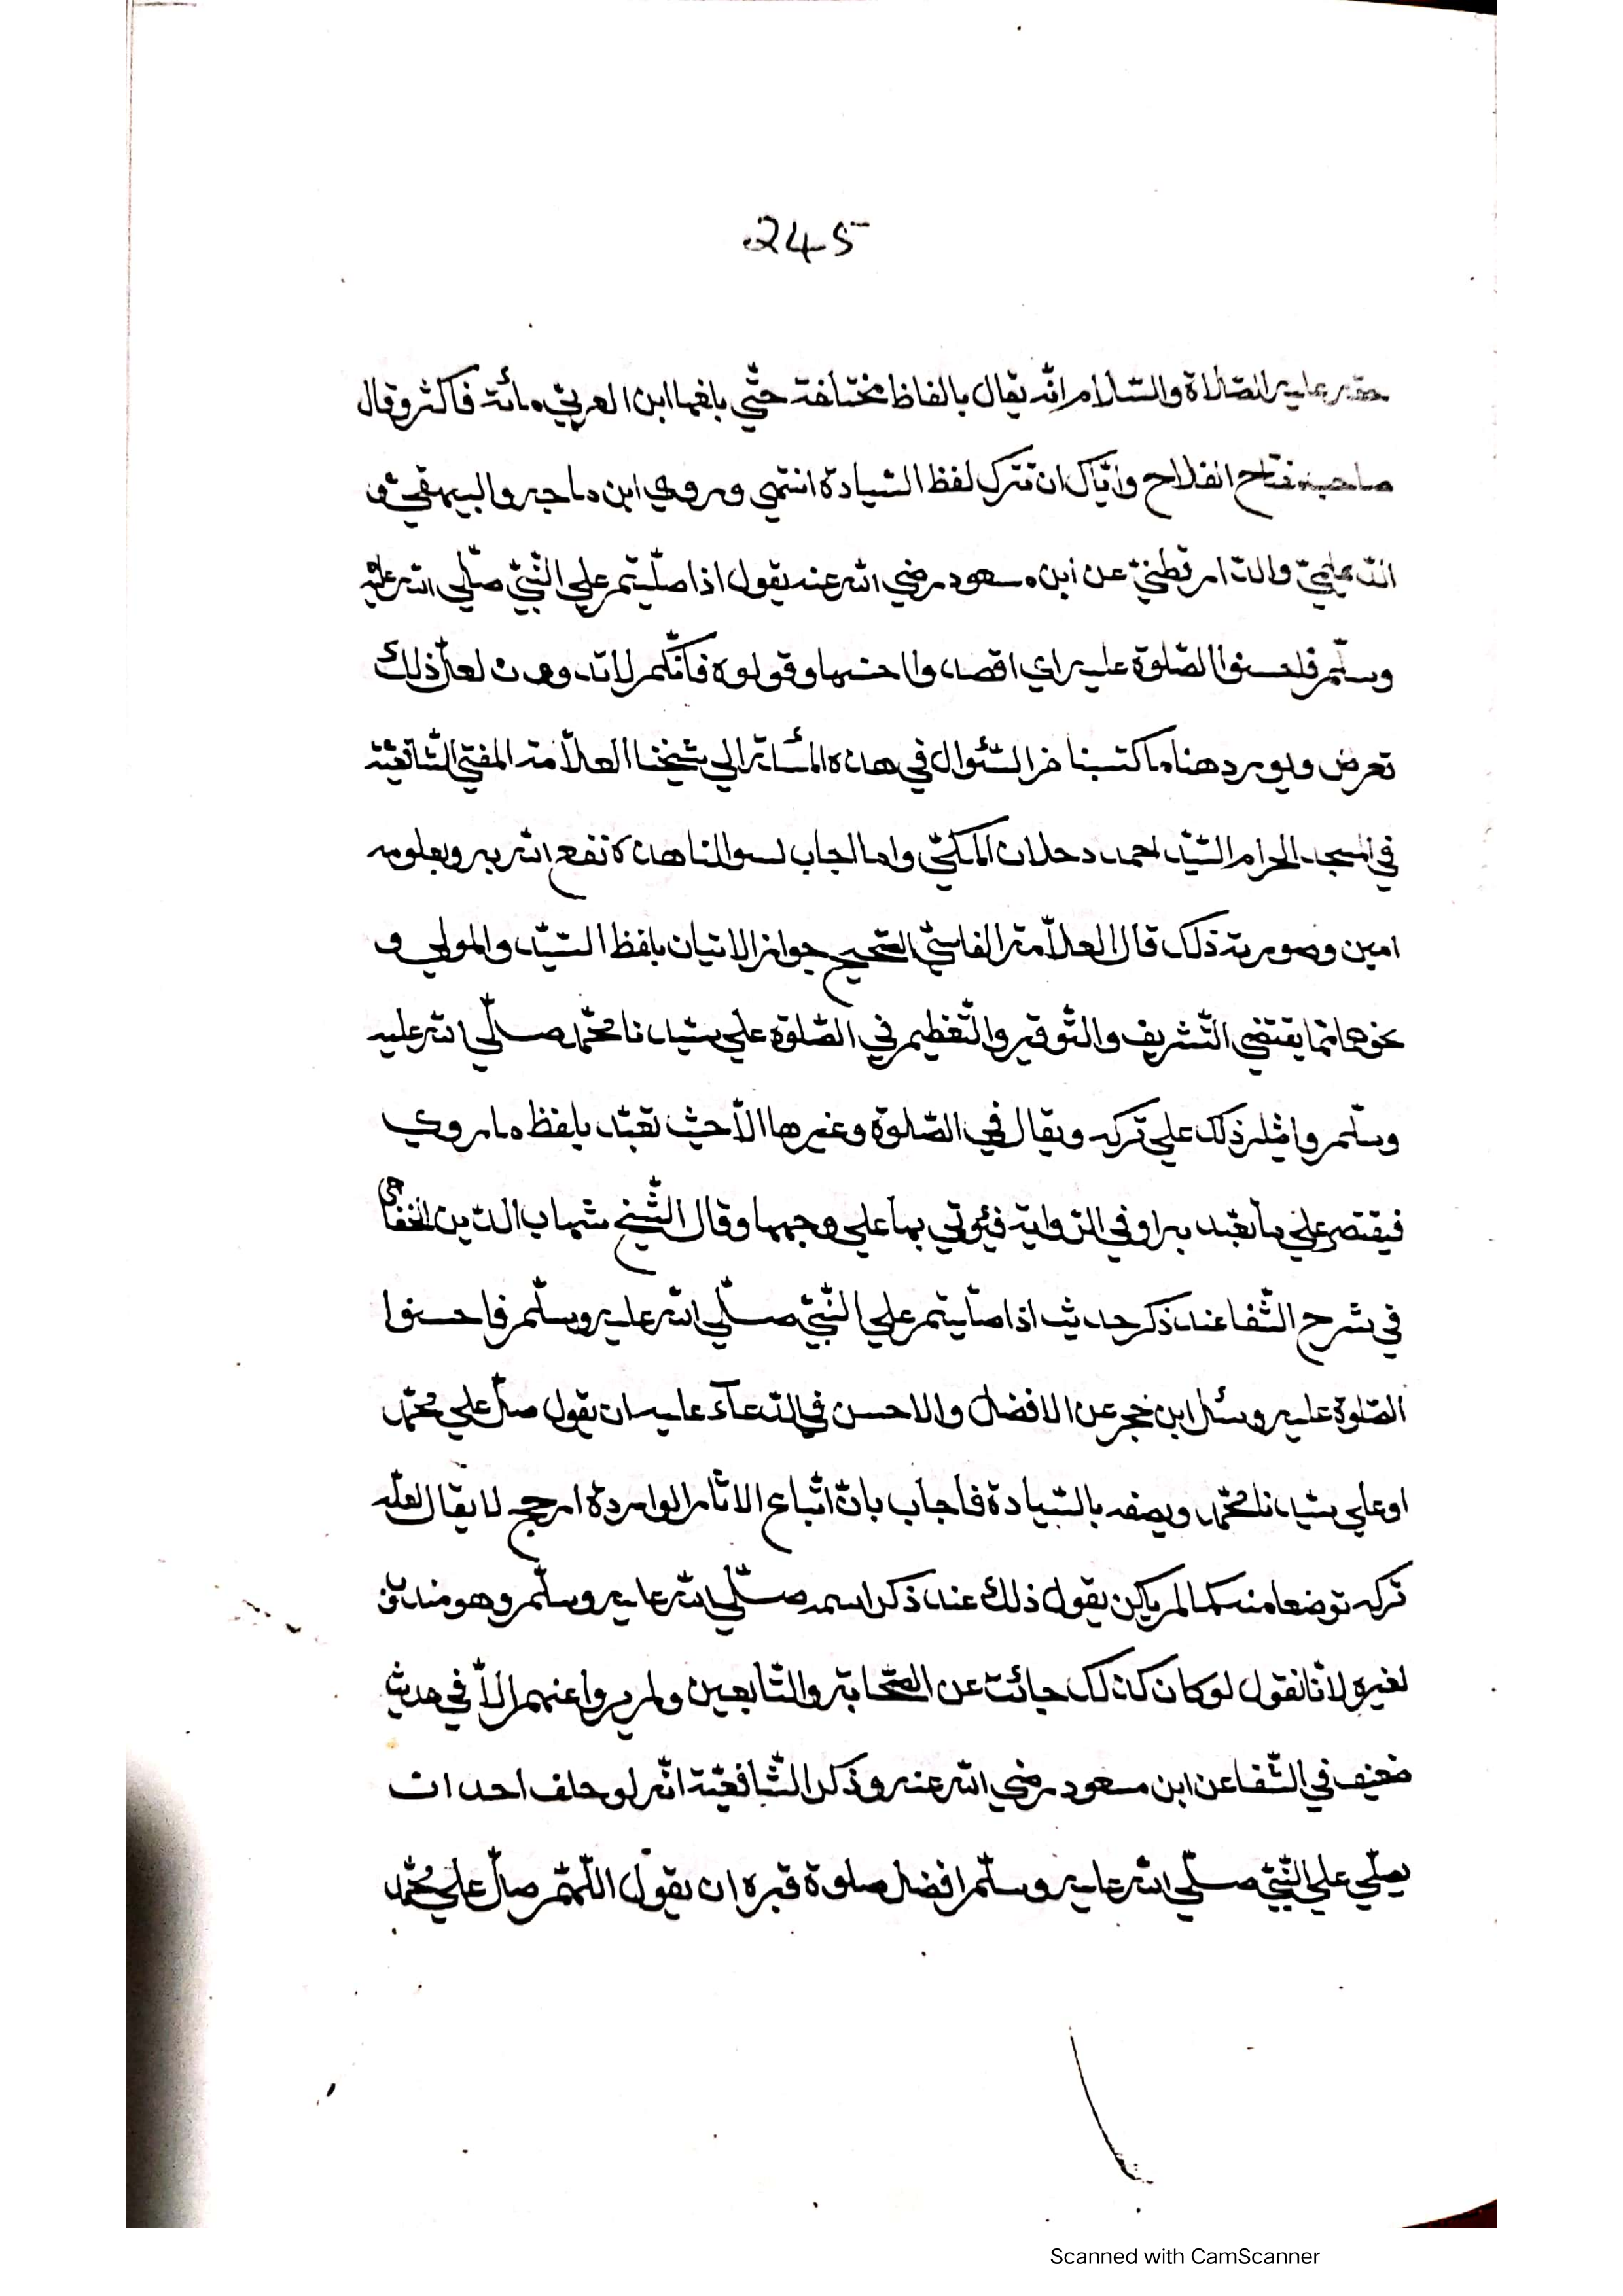 245
حقه عليه الصّلاة والسّلام انّه يقال بالفاظ مختلفة حتّي بلغها ابن العربيّ مائة فاكثر وقال
صاحب مفتاح الفلاح وايّاك ان تترك لفظ السّيادة انتهي وروي ابن ماجه والبيهقيّ و
الدّيلميّ والدّارقطنيّ عن ابن مسعود رضي الله عنه يقول اذا صلّيتم علي النّبيّ صلّي الله عليه
وسلّم فاحسنوا الصّلوة عليه اي وقولوه فانّكم لا تدرون لعلّ ذلك
تعرض ويورد هنا ما كتبنا السّئوال في هذه المسألة الي شيخنا العلاّمة المفتي الشّافعيّة
في المسجد الحرام السّيّد احمد دحلان المكّيّ واما اجاب لسوالنا هذه نفع الله به وبعلومه
امين وصورية ذلك قال العلاّمة الفاسيّ الصّحيح جواز الاتيان بلفظ السّيّد والمولي و
نحوها ممّا يقتضي التّشريف والتّوقير والتّعظيم في الصّلوة علي سيّدنا محمّد صلّي الله عليه
وسلّم وامثله ذلك علي تركه ويقال في الصّلوة وغيرها الاّ حيث تعبّد بلفظ ما روي
فيقتصر علي ما تعبّد به او في الرّواية فيئوتي بها علي وجهها وقال الشّيخ شهاب الدّين الخفاجي
في شرح الشّفا عند ذكر حديث اذا صلّيتم علي النّبيّ صلّي الله عليه وسلّم فاحسنوا
الصّلوة عليه وسئل ابن حجر عن الافضل والاحسن في الدّعآء عليه ان يقول صلّ علي محمّد
او علي سيّدنا محمّد ويصفه بالسّيادة فاجاب بانّ اتّباع الاثار الواردة ارجح لا يقال لعلّه
تركه توضعا منه كما لم يكن يقول ذلك عند ذكر اسمه صلّي الله عليه وسلّم وهو مندوب
لغيره لانّا نقول لو كان كذلك جائت عن الصّحابة والتّابعين ولم يروا عنهم الاّ في حديث
ضعيف في الشّفا عن ابن مسعود رضي الله عنه وذكر الشّافعيّة انّه لو حلف احد ان
يصلّي علي النّبيّ صلّي الله عليه وسلّم افضل صلوة قبره ان يقول اللّهمّ صلّ علي محمّد
Scanned with CamScanner